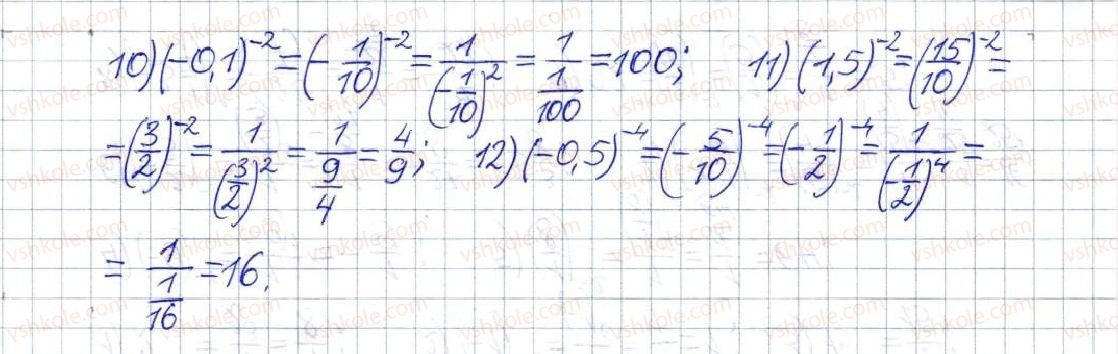 10) (-0,1)^{-2} = (-\frac{1}{10})^{-2} = \frac{1}{(-\frac{1}{10})^2} = \frac{1}{\frac{1}{100}} = 100; 11) (1,5)^{-2} = (\frac{15}{10})^{-2} =
= (\frac{3}{2})^{-2} = \frac{1}{(\frac{3}{2})^2} = \frac{1}{\frac{9}{4}} = \frac{4}{9}; 12) (-0,5)^{-4} = (-\frac{5}{10})^{-4} = (-\frac{1}{2})^{-4} = \frac{1}{(-\frac{1}{2})^4} =
= \frac{1}{\frac{1}{16}} = 16.
vshkole.com